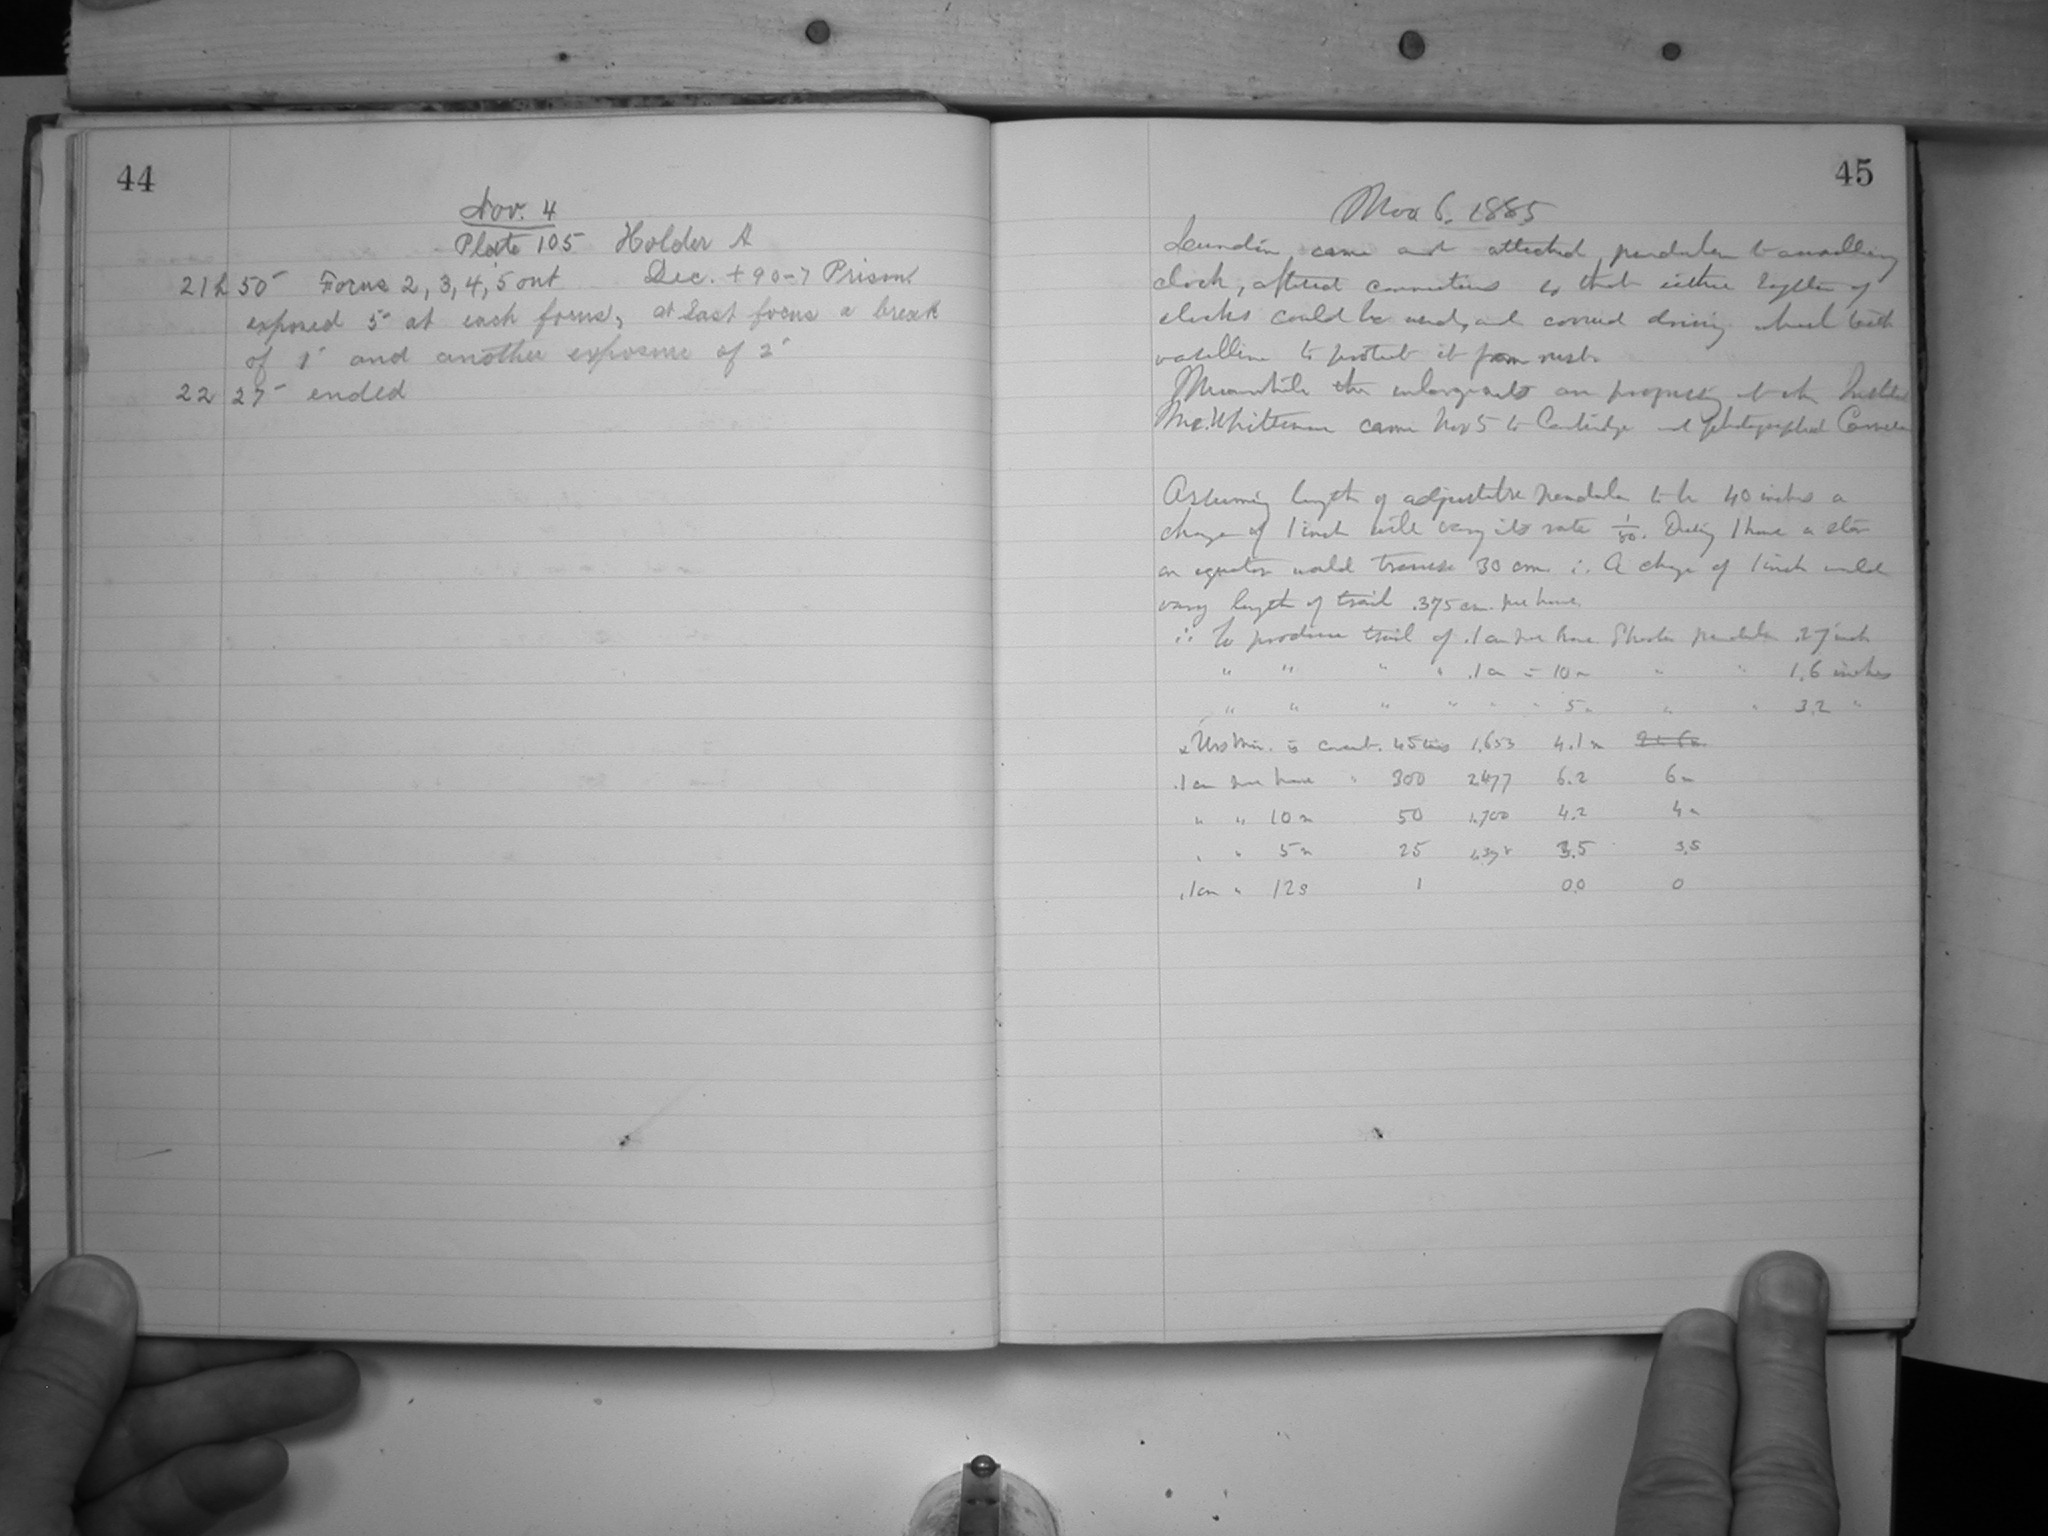 44
Nov. 4
Plate 105 Holder A
21h 50 Focus 2, 3, 4, 5 out Dec. +90-7 Prism
exposed 5 at each focus, at last focus a break
of 1 and another exposure of 2
22 27 ended
45
Nov 6. 1885
Lundin came and attached pendulum to
clock, altered connections so that either system of
clocks could be used, and covered driving wheel with
vaselline to protect it from rust.
Meanwhile the enlargements are progressing at the
Mr. Whitteman came Nov 5 to Cambridge and photographed Camera
Assuming length of adjustable pendulum to be 40 inches a
change of 1 inch will vary its rate 1/80. During 1 hour a star
on equator would traverse 30 cm. ∴ A change of 1 inch would
vary length of trail .375 cm. per hour.
∴ To produce trail of .1 cm per hour Shorten pendulum .27 inch
" " " " .1 cm = 10 m " " 1.6 inches
" " " " " " 5 " " " 3.2 "
Urs Min. 45 1.653 4.1 m
.1 cm per hour " 300 2477 6.2 6 m
" " 10 m 50 1.700 4.2 4 m
" " 5 m 25 3.5 3.5
.1 cm " 12s 1 0.0 0